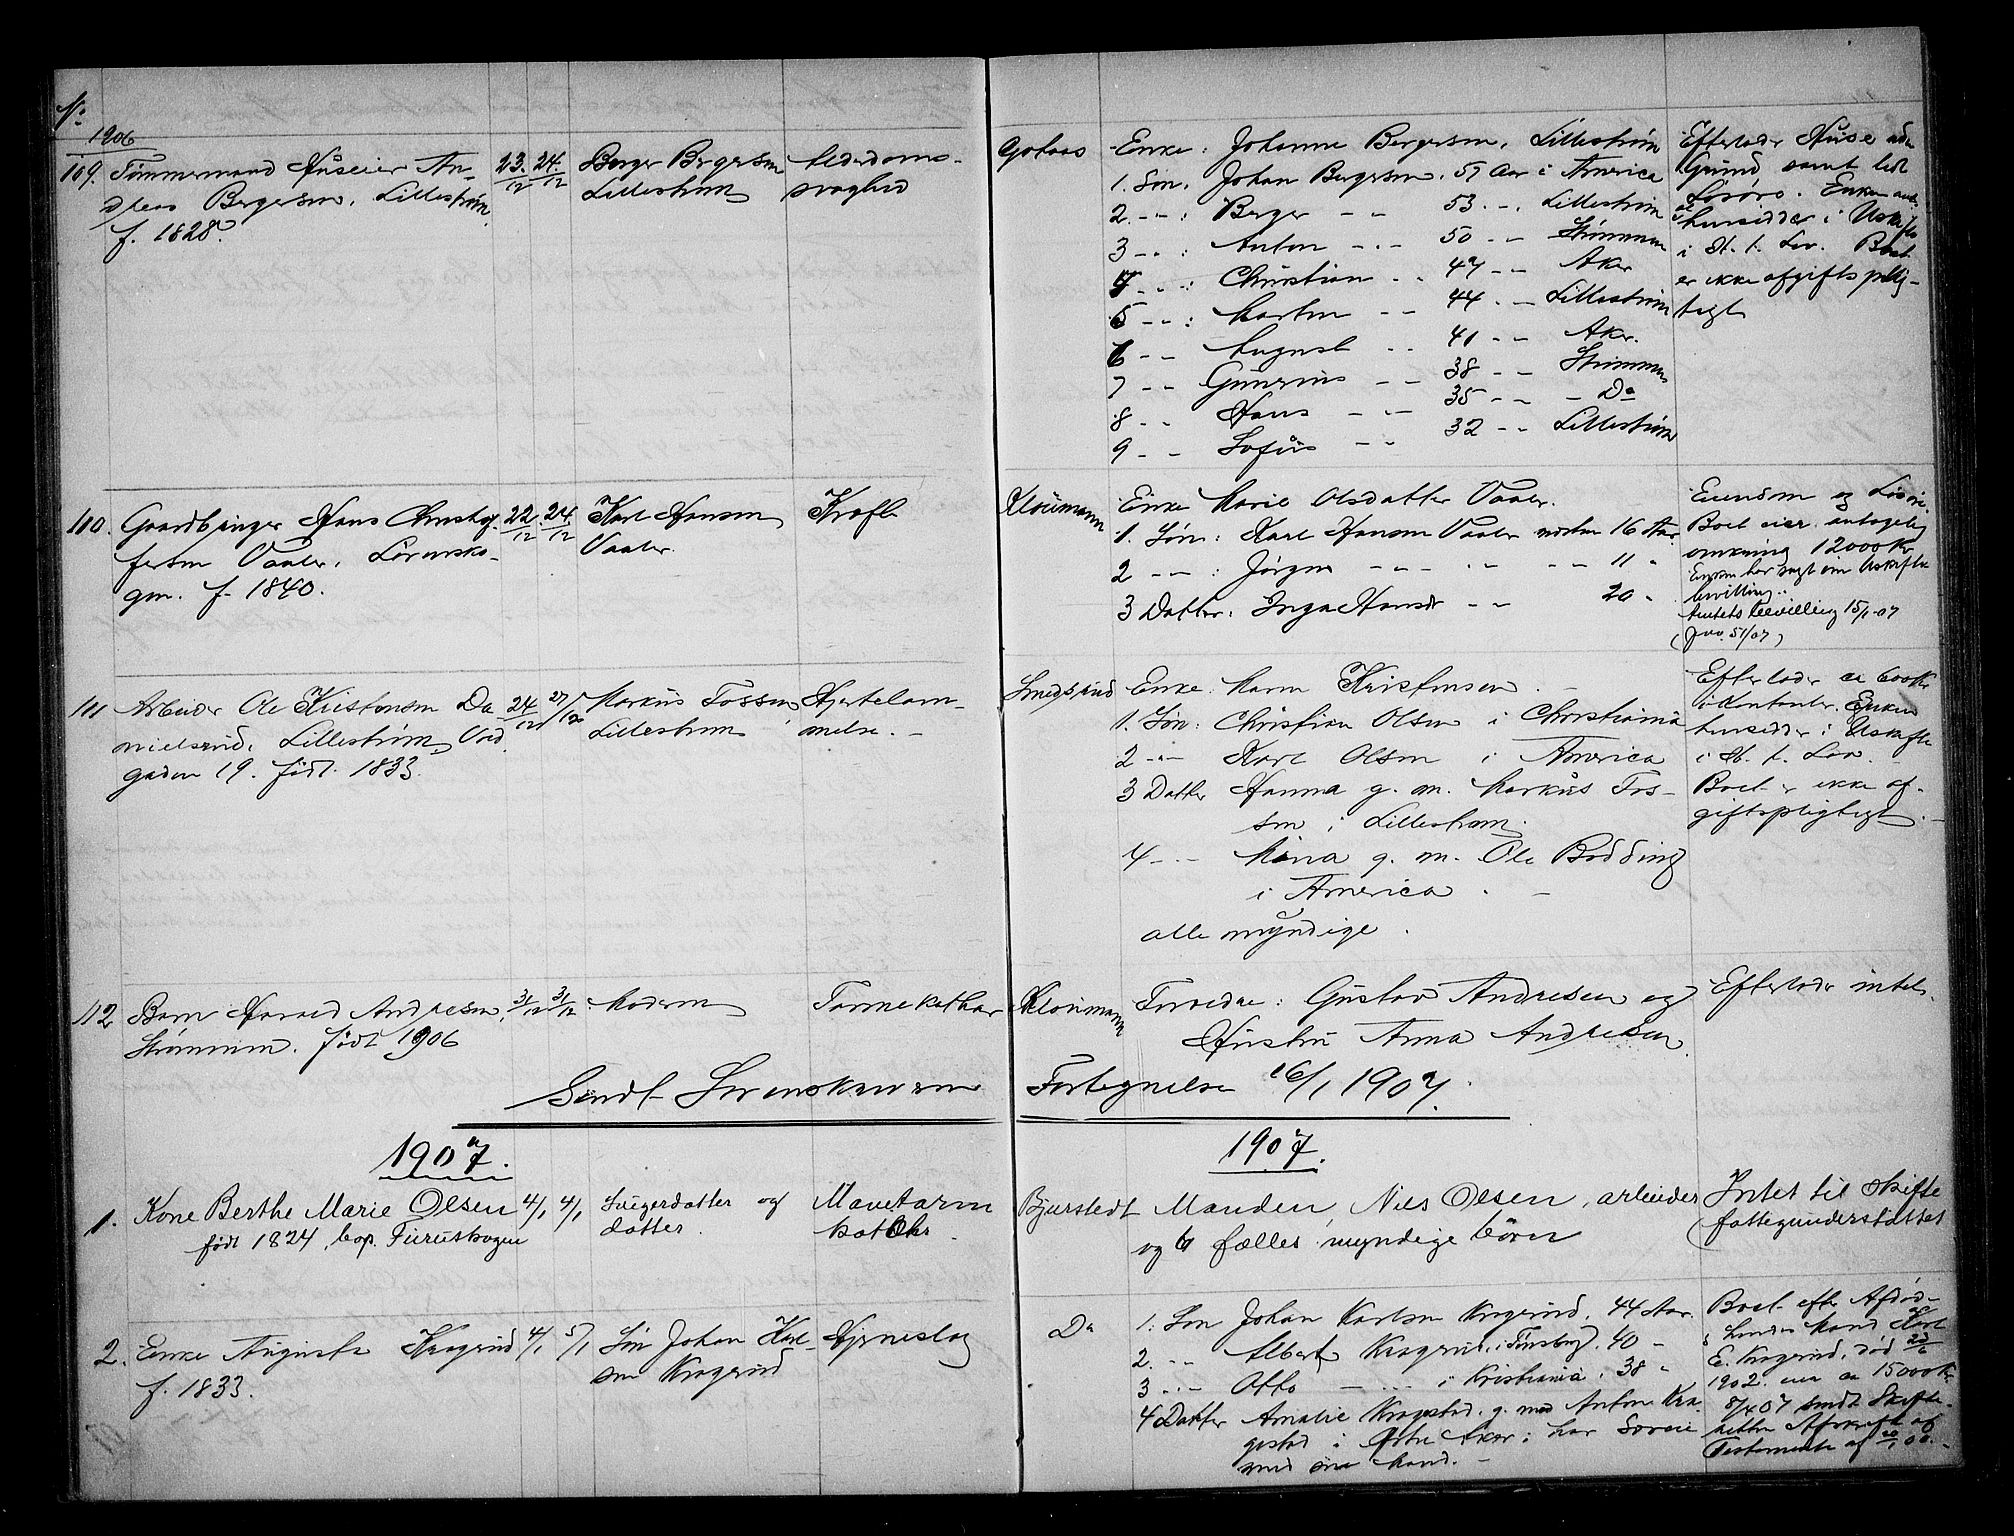 No
1906
109. Tømmermand Huseier An-
dreas Bergersen, Lillestrøm
f. 1828.
23/12 24/12
Berger Bergersen
Lillestrøm
Alderdoms-
svaghed
Gotaas
Enke: Johanne Bergersen, Lillestrøm
1. Søn, Johan Bergersen, 57 Aar i America
2. -"-: Berger -"- 53 -"- Lillestrøm
3 -"-: Anton -"- 50 -"- Strømmen
4 -"-: Christian -"- 47 -"- Aker
5 -"-: Martin -"- 44 -"- Lillestrøm
6 -"- August -"- 41 -"- Aker.
7 -"- Gunerius -"- 38 -"- Strømmen
8 -"- Hans -"- 35 -"- Do
9 -"- Sofus -"- 32 -"- Lillestrøm
Efterlader Huse uden
Grund samt lidt
Løsøre. Enken
hensidder i Uskifte
i H. t. Lov. Boet
er ikke afgiftsplig-
tigt
110. Gaardbruger Hans Christof-
fersen Vaaler, Lørensko-
gen. f. 1840.
22/12 24/12
Karl Hansen
Vaaler.
Kræft
Klouman
Enke Marie Olsdatter Vaaler.
1. Søn: Karl Hansen Vaaler næsten 16 Aar
2 -"-: Jørgen -"- -"- -"- 11 "
3 Datter: Inga Hansdr -"- 20 "
Eiendom og Løsøre.
Boet eier antagelig
omkring 12000 Kr
Enken har søgt om Uskifte
bevilling.
Amtets bevilling 15/1-07
(Jno. 51/07)
111 Arbeider Ole Kristensen Da
nielsrud, Lillestrøm, Vold
gaden 19. født. 1833.
24/12 27/12
Markus Fossen
Lillestrøm
Hjertelam-
melse. -
Smedsrud
Enke: Karen Kristensen. -
1. Søn: Christian Olsen i Christiania
2 -"- Karl Olsen i America
3 Datter Hanna g. m. Markus Fos-
sen i Lillestrøm.
4 -"- Mina g. m. Ole Bodding
i America. -
alle myndige.
Efterlader ca 600 Kr
i Kontanter. Enken
hensidder i Uskifte
i H. t. Lov.
Boet er ikke af-
giftspligtigt. -
112 Barn Harald Andresen,
Strømmen. født 1906
31/12 31/12
Moderen
Tarmekathar
Klouman
Forældre: Gustav Andresen og
Hustru Anna Andresen.
Efterlader intet.
Sendt Sorenskriveren
Fortegnelse 16/1 1907.
1907.
1907.
1. Kone Berthe Marie Olsen
født 1824, bop. Furuskogen
4/1 4/1
Svigerdatter og
datter.
Mavetarm
katthr.
Bjerstedt
Manden, Niels Olsen, arbeider
og 6 fælles myndige börn
Intet til skifte
(fattigunderstöttet
2. Enke Augusta Kragerud
f. 1833.
4/1 5/1
Søn Johan Karl-
sen Kragerud
Hjerneslag
Do
1. Søn Johan Karlsen Kragerud, 44 Aar.
2. -"- Albert Kragerud, i Tønsberg, 40 "
3 -"- Otto -"- i Kristiania, 38 "
4 Datter Amalie Kragstad, g. med Anton Kra-
gstad i Østre Aker: har Særeie
med sin Mand. -
Boet efter Afdød-
& hendes Mand Karl
E. Kragerud, død
1902. eier ca 15000 Kr.
8/4 07 sendt Skifte-
retten Afskrift af
Testamente af